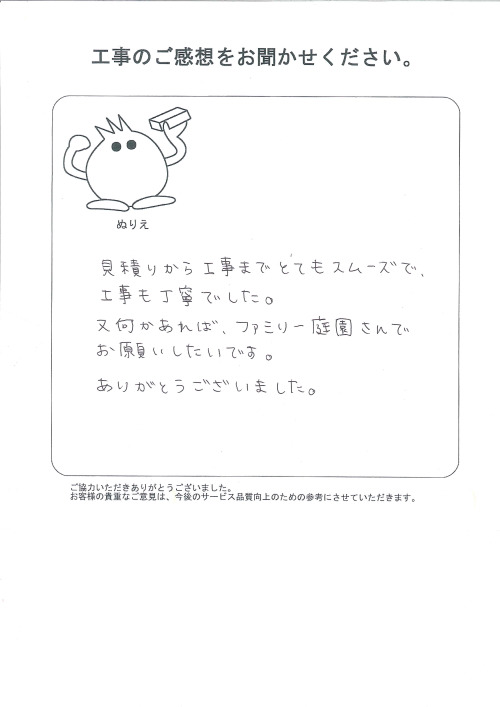 工事のご感想をお聞かせください。
ぬりえ
見積りから工事までとてもスムーズで、
工事も丁寧でした。
又何かあれば、ファミリー庭園さんで
お願いしたいです。
ありがとうございました。
ご協力いただきありがとうございました。
お客様の貴重なご意見は、今後のサービス品質向上のための参考にさせていただきます。